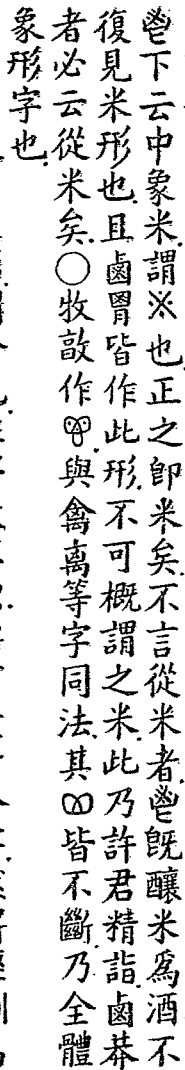 鬯下云中象米謂※也正之卽米矣不言從米者鬯旣釀米爲酒不
復見米形也且鹵胃皆作此形不可概謂之米此乃許君精詣鹵莽
者必云從米矣〇牧敦作與禽离等字同法其皆不斷乃全體
象形字也